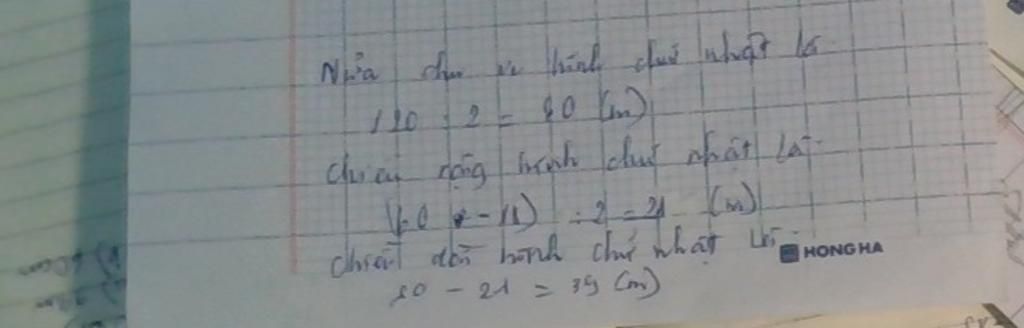 Nửa chu vi hình chữ nhật là
120 : 2 = 60 (m)
Chiều rộng hình chữ nhật là:
(60 - 18) : 2 = 21 (m)
Chiều dài hình chữ nhật là:
HONG HA
60 - 21 = 39 (m)